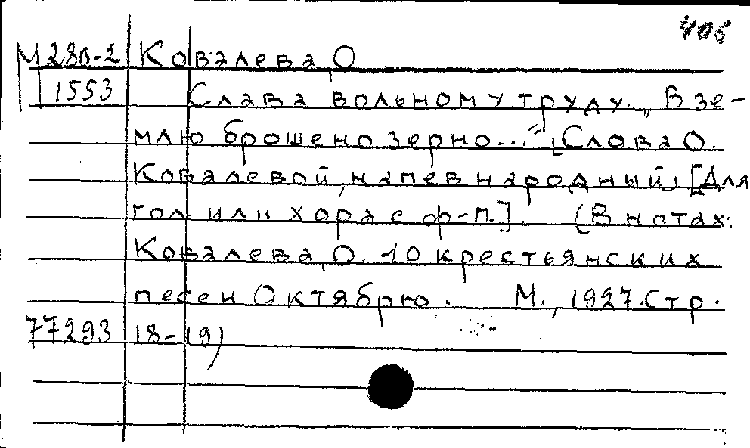 405
М28в-2 Ковалева, О
1553 Слава вольному труду. „В зе-
млю брошено зерно...“ [Слова О.
Ковалевой, напев народный]. [Для
гол. или хора с ф-п.]. (В нотах:
Ковалева, О. 10 крестьянских
песен Октябрю. М., 1927. Стр.
77293 18-19)